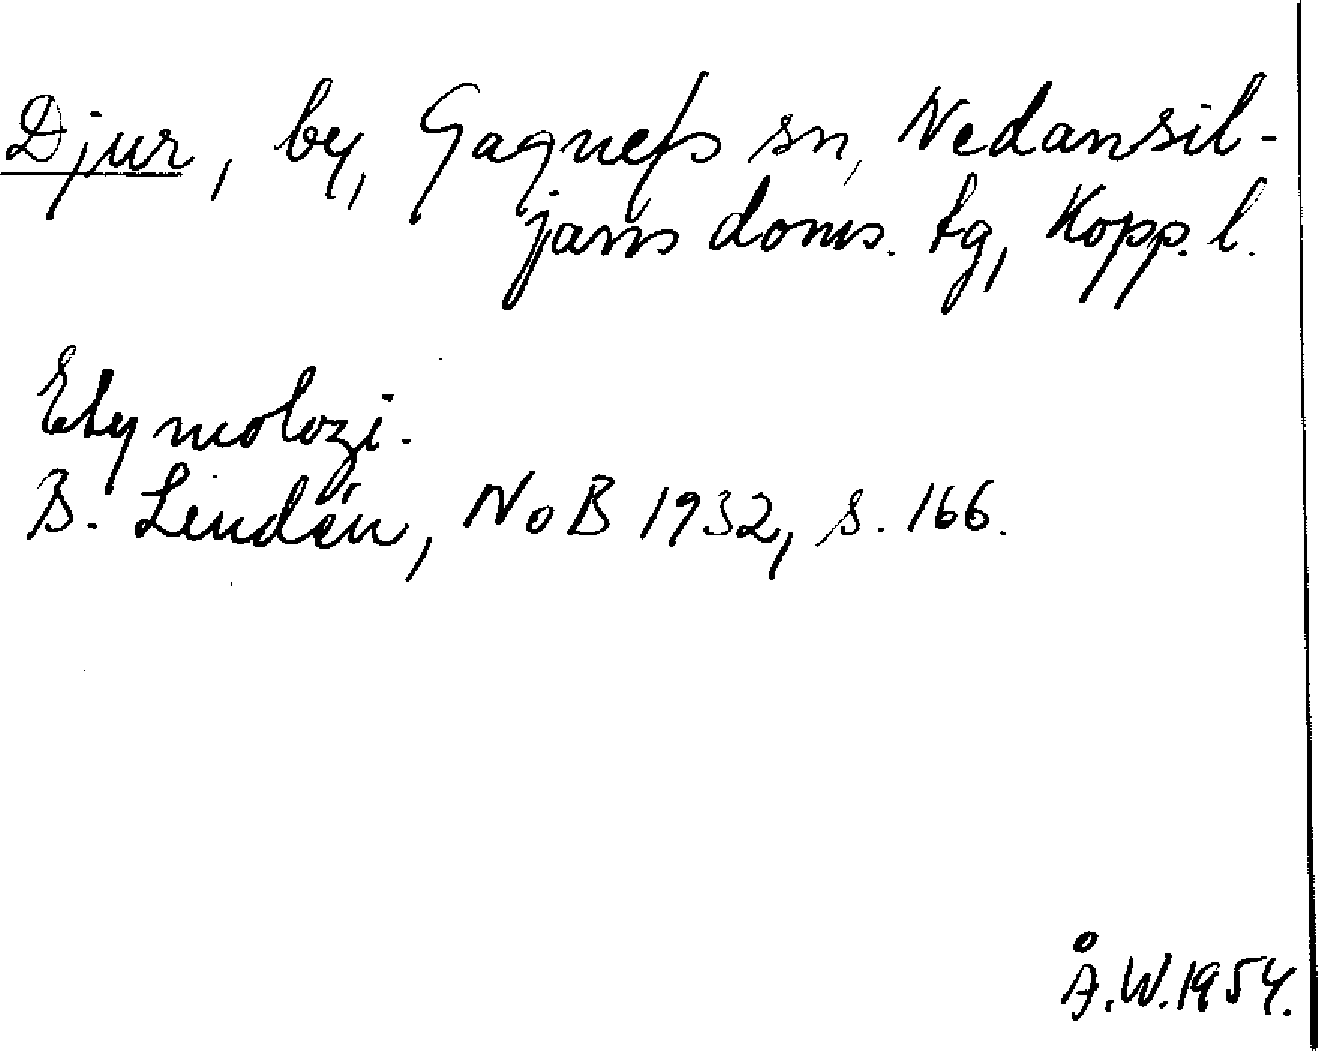 Djur, by, Gagnefs sn, Nedansil-
jans doms. tg, Kopp. l.
Etymologi.
B. Lindén, NoB 1932, s. 166.
Å.W. 1954.